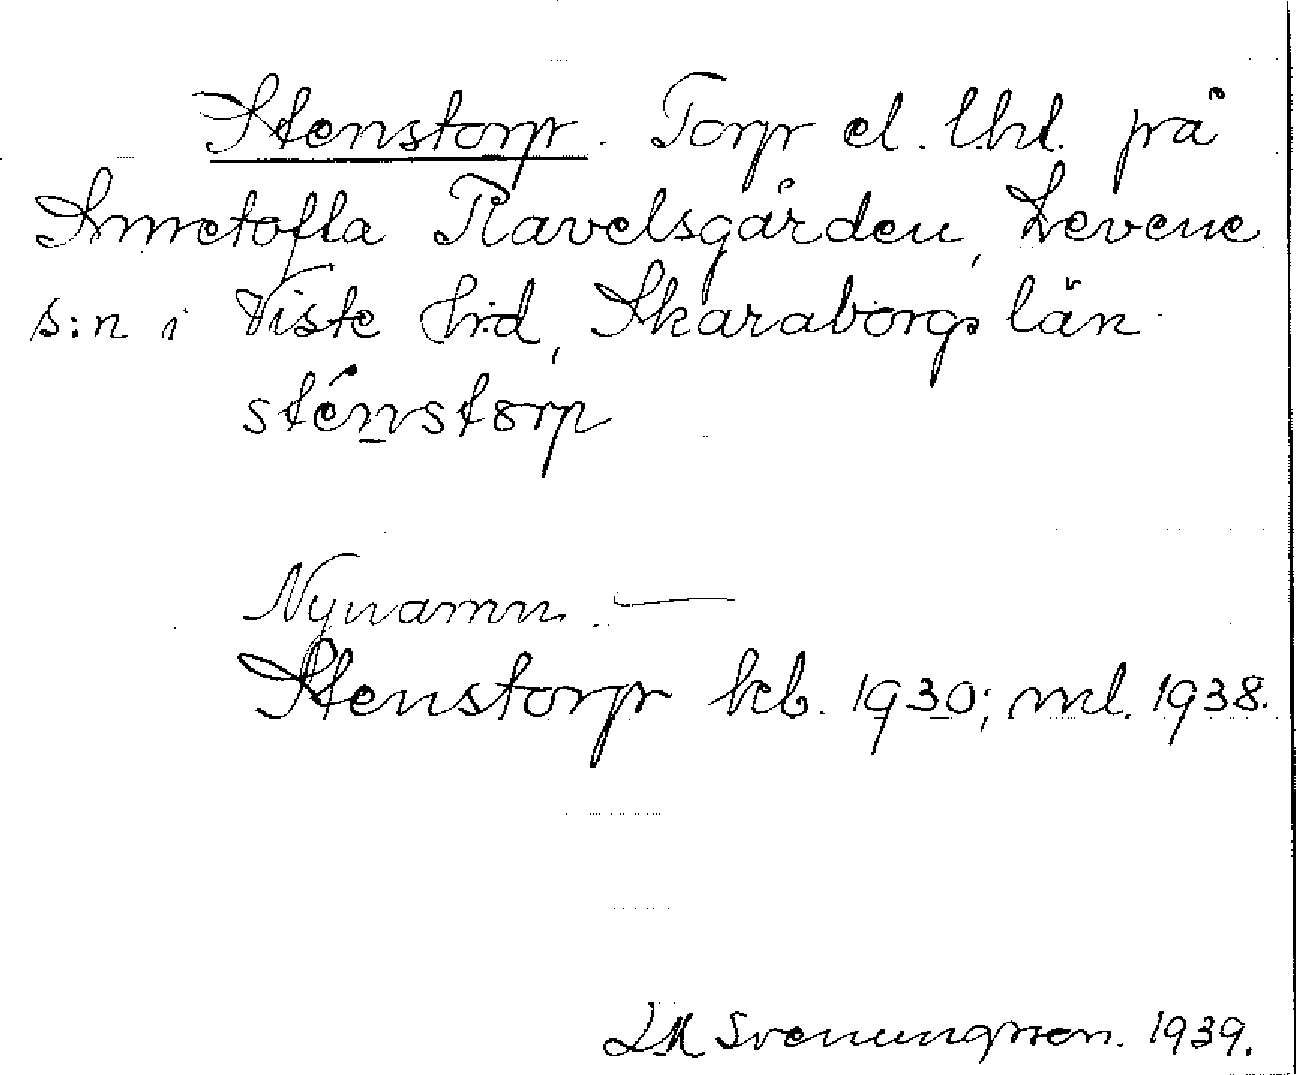 Stenstorp. Torp el. lht. på
Smetofta Ravelsgården, Levene
s:n i Viste hrd, Skaraborgs län.
sténstorp
Nynamn. —
Stenstorp kb. 1930; ml. 1938.
Svenungsson. 1939.